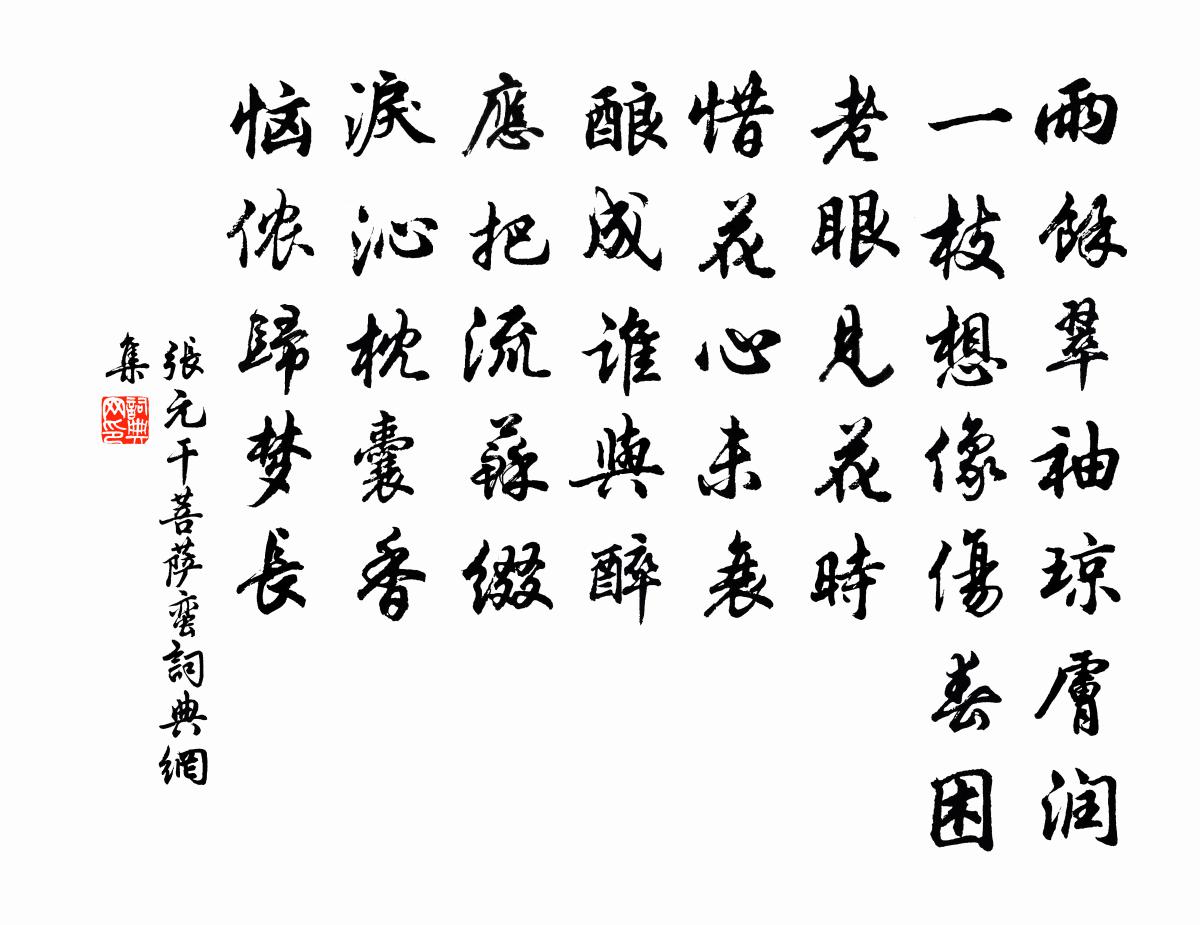 雨餘翠袖琼膚润
一枝想像傷春困
老眼見花時
惜花心未衰
酿成誰與醉
應把流蘇綴
淚沁枕囊香
恼侬歸梦長
張元干菩萨蛮詞典網
集
詞典
网印